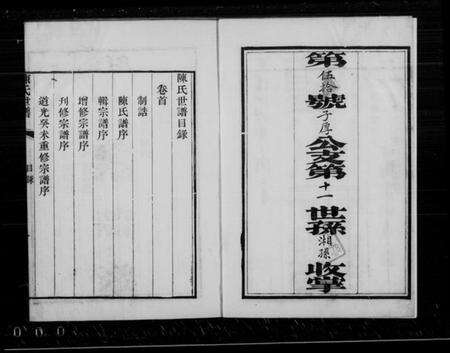 第伍拾號子厚公支第十一世孫湘孫收掌
陳氏世譜目錄
卷首
制誥
陳氏譜序
輯宗譜序
增修宗譜序
刋修宗譜序
道光癸未重修宗譜序
陳氏世譜
目錄
000